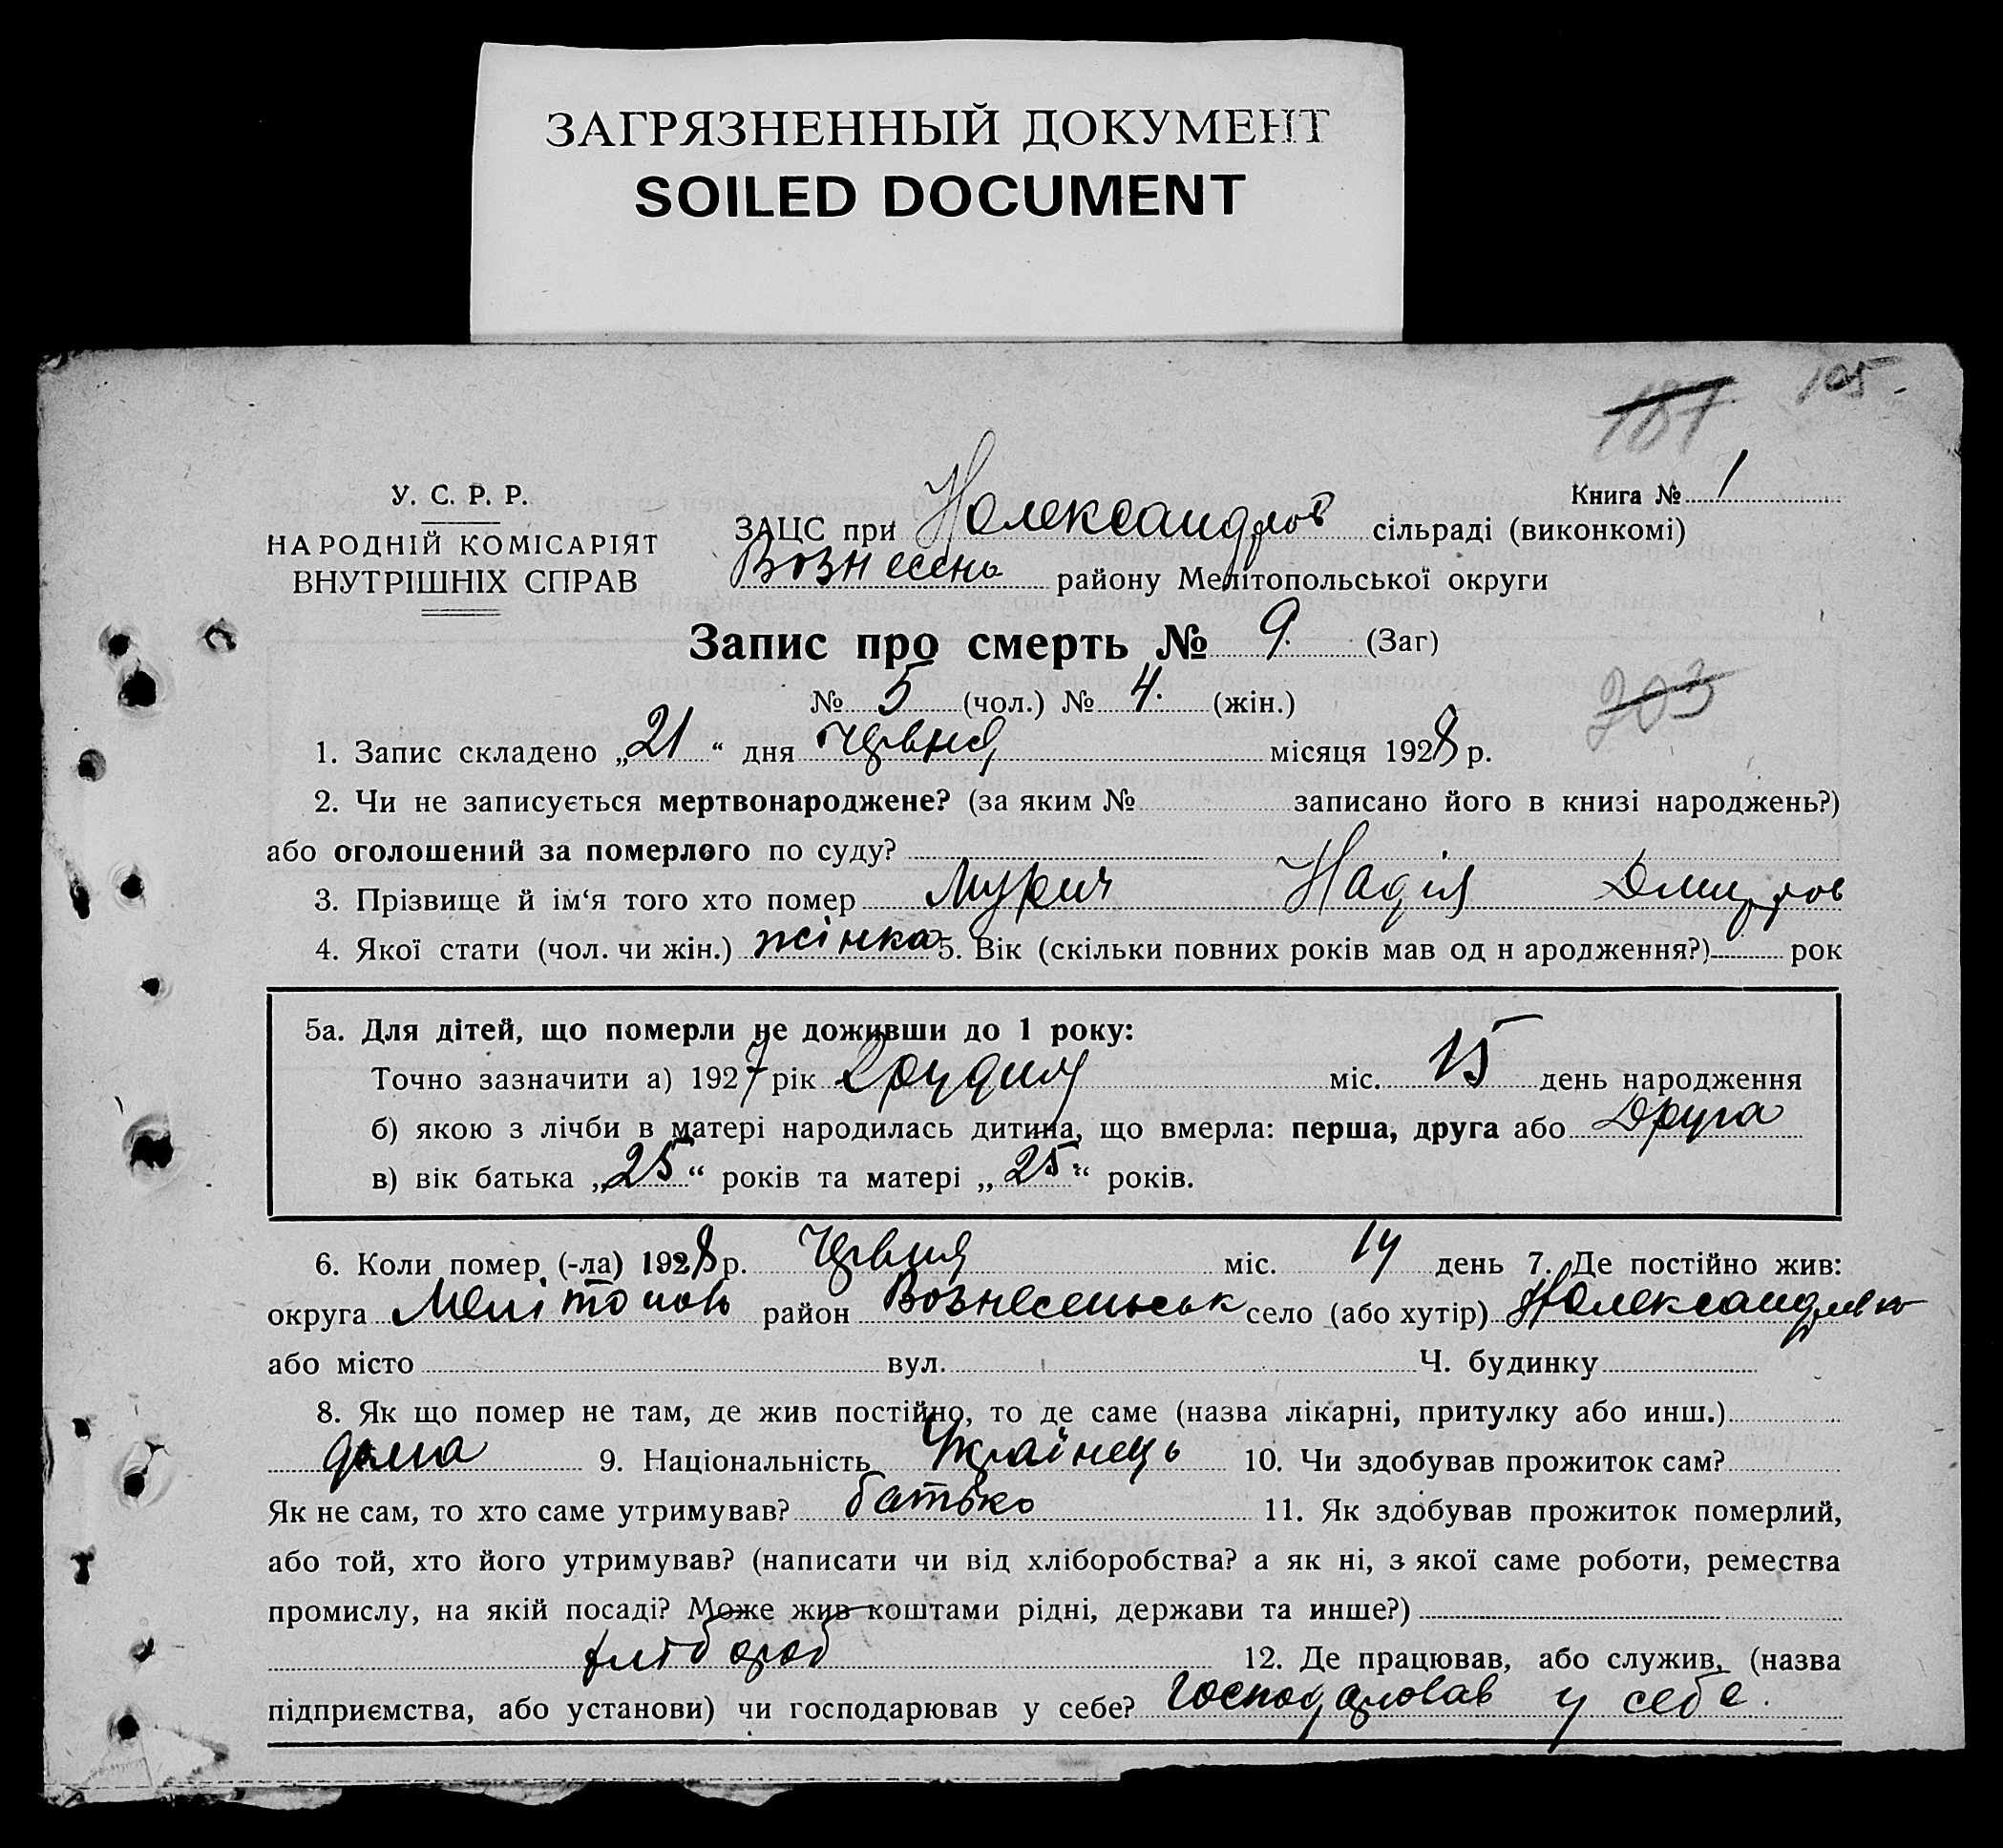 ЗАГРЯЗНЕННЫЙ ДОКУМЕНТ
SOILED DOCUMENT
187 105.
У. С. Р. Р.
НАРОДНІЙ КОМІСАРІЯТ
ВНУТРІШНІХ СПРАВ
Книга № 1
ЗАЦС при Нолександров сільраді (виконкомі)
Вознесень району Мелітопольської округи
Запис про смерть № 9. (Заг)
203
№ 5 (чол.) № 4. (жін.)
1. Запис складено „21“ дня Червня місяця 1928 р.
2. Чи не записується мертвонароджене? (за яким № записано його в книзі народжень?)
або оголошений за померлого по суду?
3. Прізвище й ім‘я того хто помер Мурич Надія Дмитров
4. Якої стати (чол. чи жін.) жінка 5. Вік (скільки повних років мав од н ародження?) рок
5а. Для дітей, що померли не доживши до 1 року:
Точно зазначити а) 1927 рік Грудня міс. 15 день народження
б) якою з лічби в матері народилась дитина, що вмерла: перша, друга або Друга
в) вік батька „25“ років та матері „25“ років.
6. Коли помер (-ла) 1928 р. Червня міс. 14 день 7. Де постійно жив:
округа Мелітополь район Вознесенськ село (або хутір) Нолександрівка
або місто вул. Ч. будинку
8. Як що помер не там, де жив постійно, то де саме (назва лікарні, притулку або инш.)
дома 9. Національність Українець 10. Чи здобував прожиток сам?
Як не сам, то хто саме утримував? батько 11. Як здобував прожиток померлий,
або той, хто його утримував? (написати чи від хліборобства? а як ні, з якої саме роботи, ремества
промислу, на якій посаді? Може жив коштами рідні, держави та инше?)
хлібороб 12. Де працював, або служив, (назва
підприємства, або установи) чи господарював у себе? Господарював у себе.